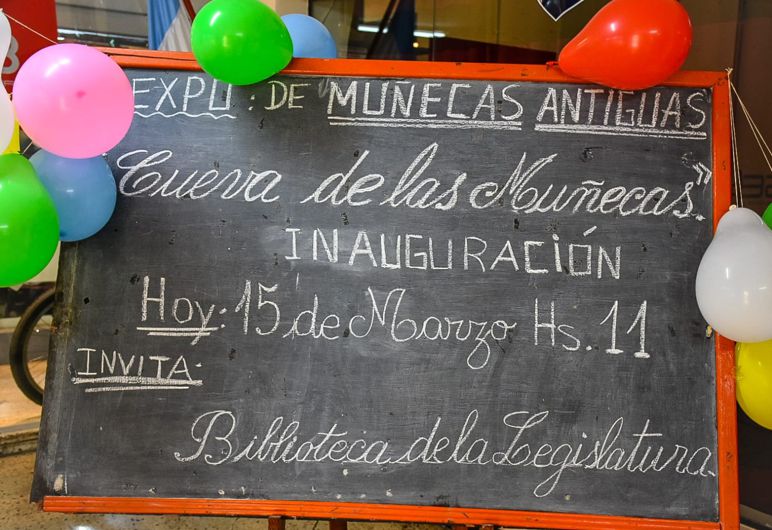 EXPO: DE "MUÑECAS ANTIGUAS
Cueva de las Muñecas."
INAUGURACIÓN
Hoy: 15 de Marzo Hs. 11
INVITA:
Biblioteca de la Legislatura